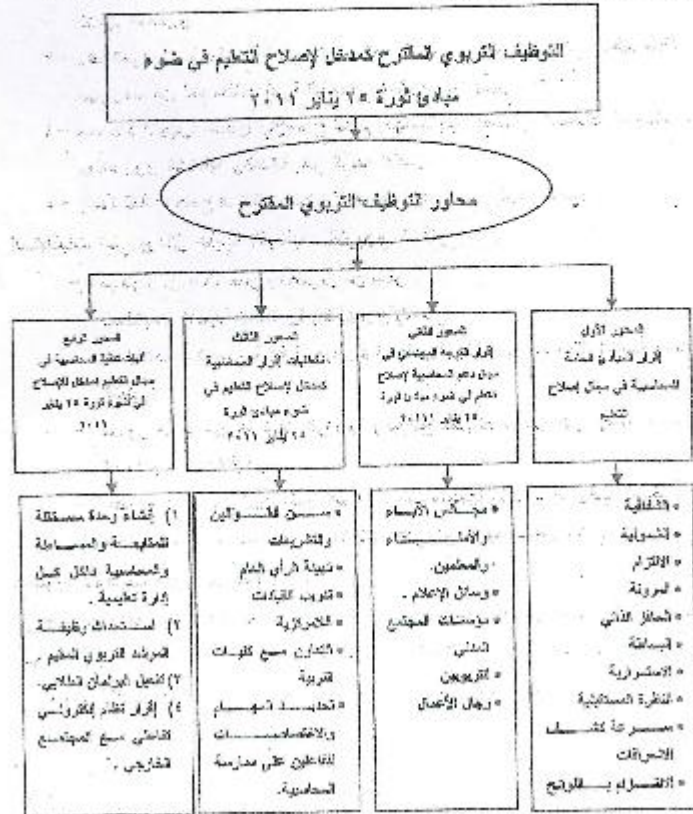 التوظيف التربوي المقترح كمدخل لإصلاح التعليم في ضوء
مبادئ ثورة ٢٥ يناير ٢٠١١
محاور التوظيف التربوي المقترح
المحور الأول
إقرار المبادئ العامة
للمحاسبية في مجال إصلاح
التعليم
المحور الثاني
إقرار التوجه المجتمعي في
مجال دعم المحاسبية لإصلاح
التعليم في ضوء مبادئ ثورة
٢٥ يناير ٢٠١١
المحور الثالث
متطلبات إقرار المحاسبية
كمدخل لإصلاح التعليم في
ضوء مبادئ ثورة
٢٥ يناير ٢٠١١
المحور الرابع
المحاسبية في
مجال التعليم كمدخل للإصلاح
في ضوء ثورة ٢٥ يناير
٢٠١١
• الشفافية
• الشمولية
• الالتزام
• المرونة
• الحافز الذاتي
• البساطة
• الاستمرارية
• النظرة المستقبلية
• سرعة كشف
الانحرافات
• الالتزام باللوائح
• مجالس الآباء
والأمناء
والمعلمين.
• وسائل الإعلام.
• مؤسسات المجتمع
المدني.
• التربويين
• رجال الأعمال
• سن القوانين
والتشريعات
• تهيئة الرأي العام
• تدريب القيادات
• اللامركزية
• التعاون مع كليات
التربية
• تحديد المهام
والاختصاصات
للفاعلين على ممارسة
المحاسبية.
١) إنشاء وحدة مستقلة
للمتابعة والمساءلة
والمحاسبية داخل كل
إدارة تعليمية.
٢) استحداث وظيفة
المرشد التربوي المقيم.
٣) تفعيل البرلمان الطلابي.
٤) إقرار نظام إلكتروني
تفاعلي مع المجتمع
الخارجي.